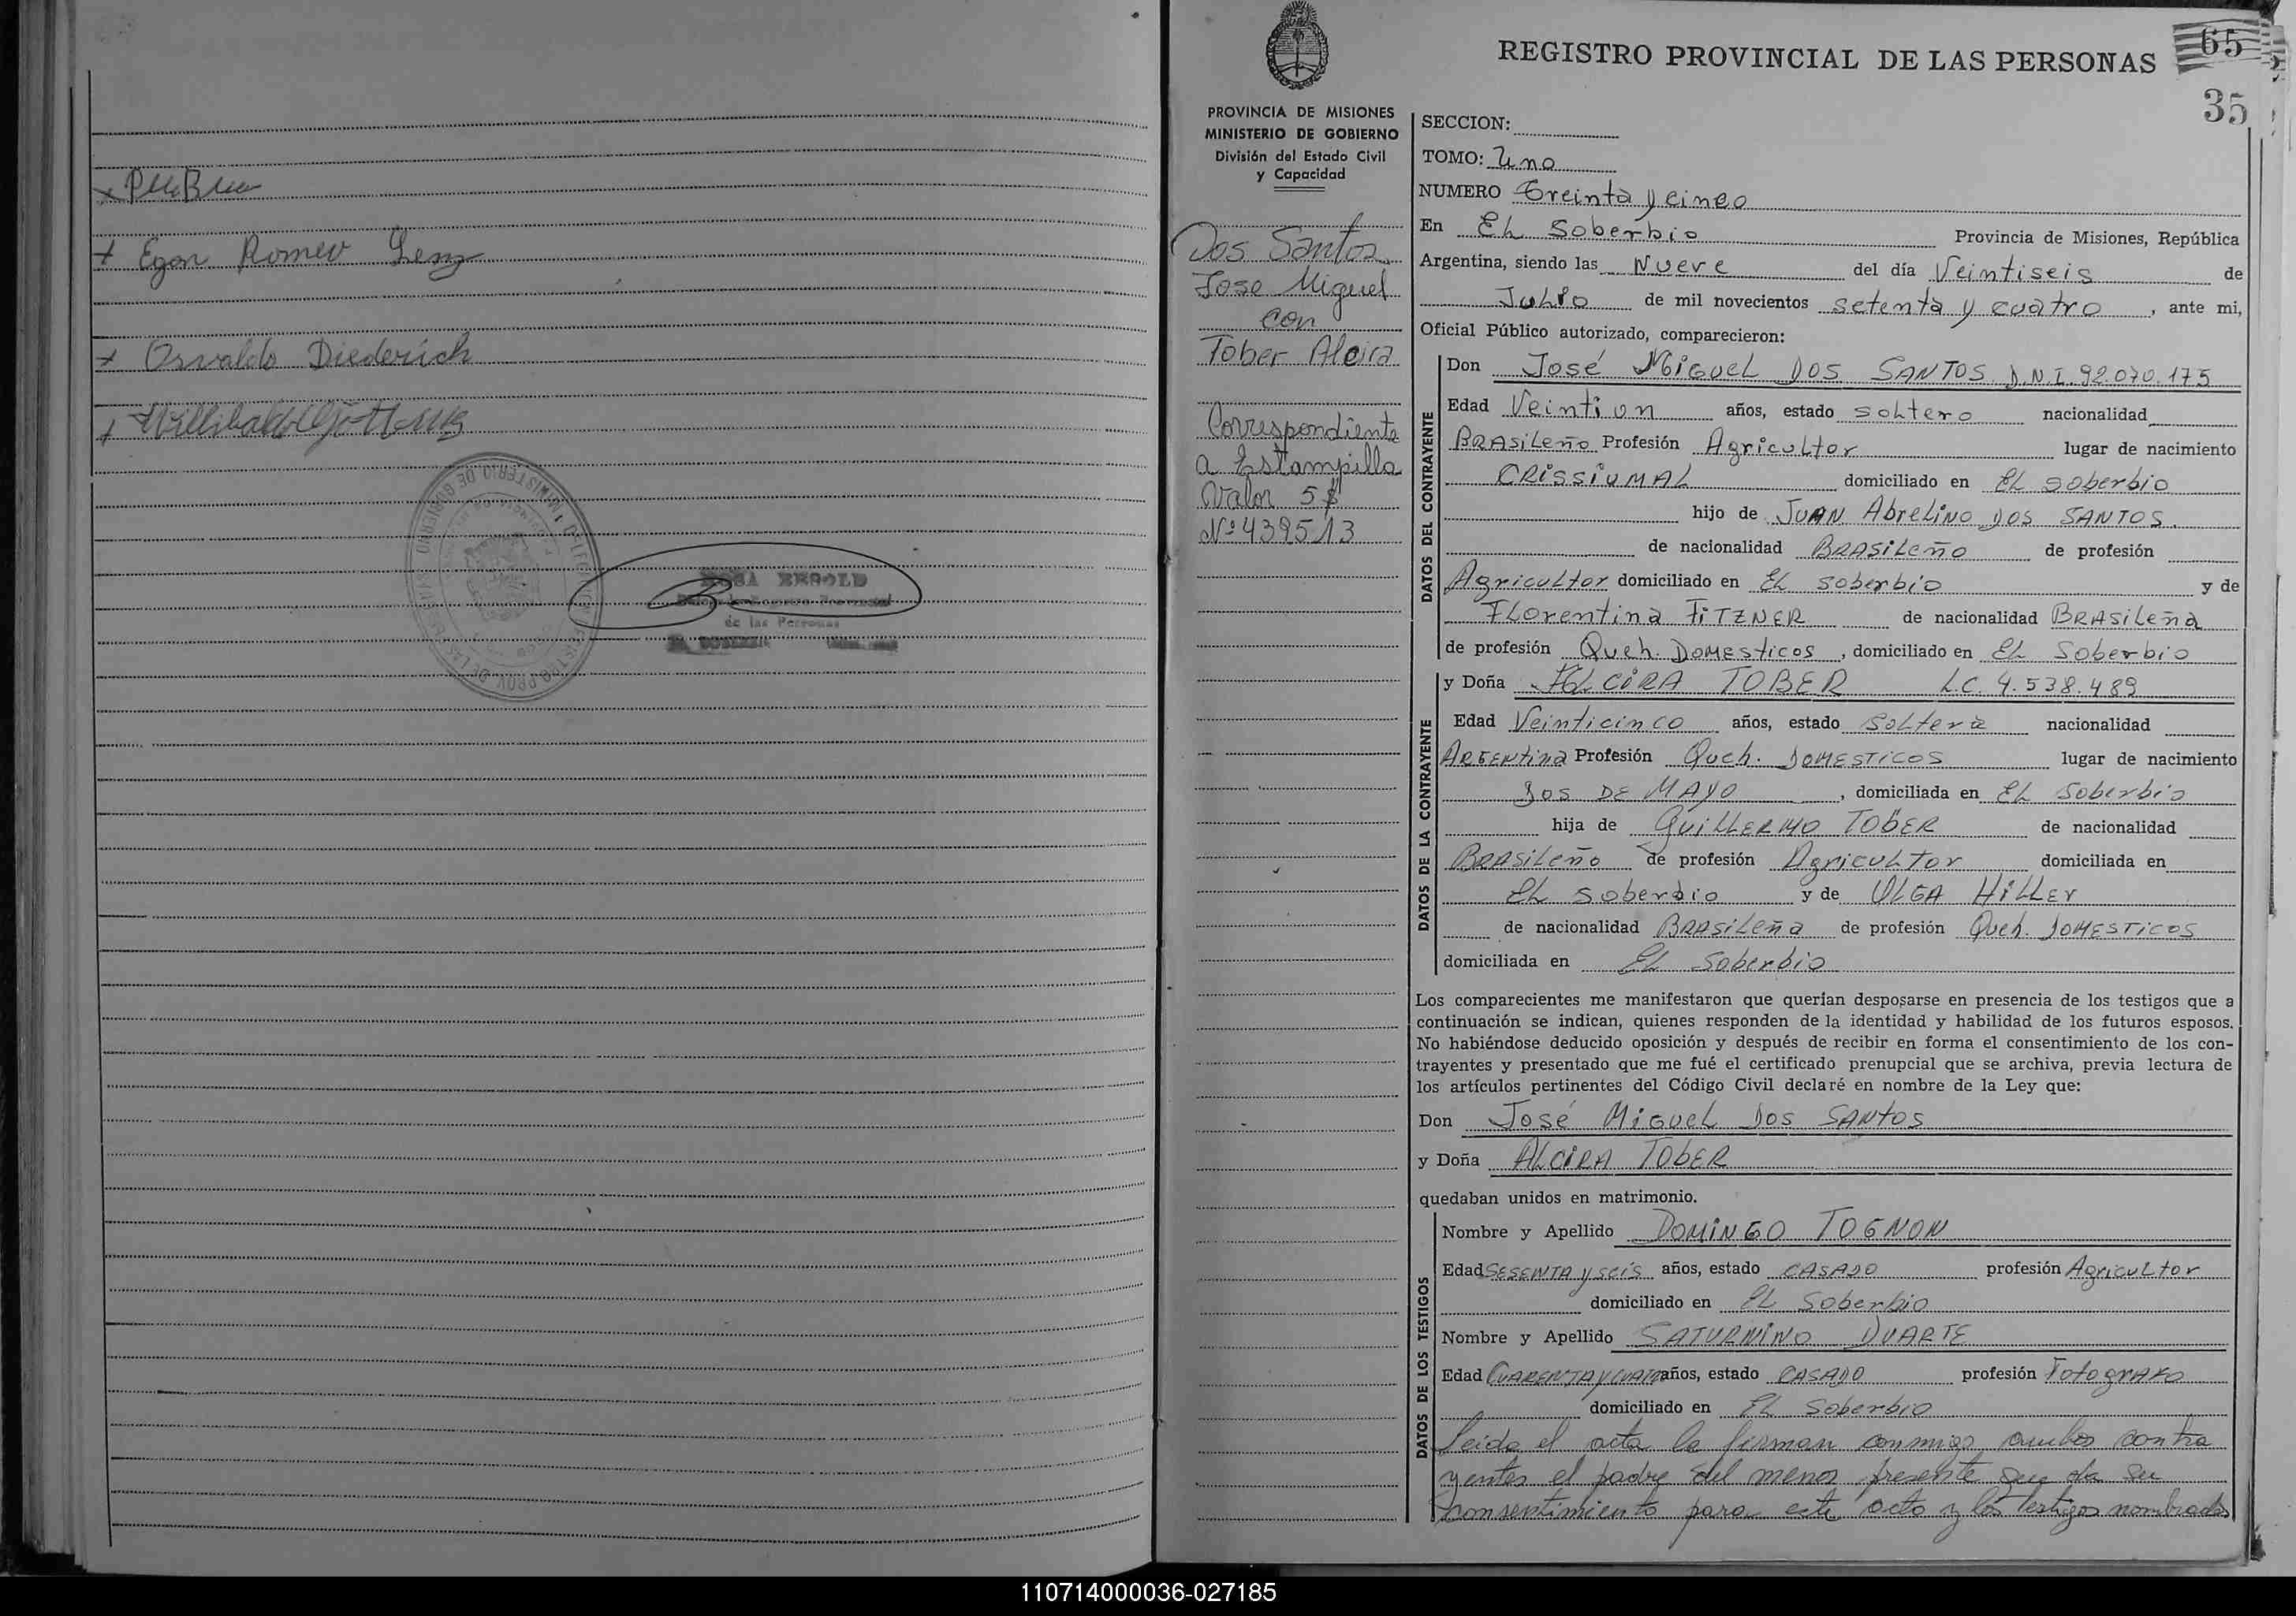 + Egon Romeo Lenz
x Osvaldo Diederich
MINISTERIO DE GOBIERNO
ROSA
de las Personas
REGISTRO PROVINCIAL DE LAS PERSONAS
65
35
PROVINCIA DE MISIONES
MINISTERIO DE GOBIERNO
División del Estado Civil
y Capacidad
Dos Santos
Jose Miguel
con
Tober Alcira
Correspondiente
a Estampilla
Valor 5 $
Nº 439513
SECCION:
TOMO: Uno
NUMERO Treinta y cinco
En EL Soberbio Provincia de Misiones, República
Argentina, siendo las Nueve del día Veintiseis de
Julio de mil novecientos setenta y cuatro, ante mi,
Oficial Público autorizado, comparecieron:
DATOS DEL CONTRAYENTE
Don José Miguel DOS SANTOS D.N.I. 92.070.175
Edad Veintiun años, estado soltero nacionalidad
BRASiLeño Profesión Agricultor lugar de nacimiento
CRiSSiUMAL domiciliado en EL Soberbio
hijo de JUAN AbreLiNO DOS SANTOS.
de nacionalidad BRASiLeño de profesión
Agricultor domiciliado en EL soberbio y de
FLorentina FiTZNER de nacionalidad BRASiLeña
de profesión Queh. DOMesticos, domiciliado en EL Soberbio
DATOS DE LA CONTRAYENTE
y Doña ALCiRA TOBER L.C. 4.538.489
Edad Veinticinco años, estado SoLtera nacionalidad
ARGENtina Profesión Queh. DOMESTICOS lugar de nacimiento
DOS DE MAYO, domiciliada en EL Soberbio
hija de GUiLLERMO TOBER de nacionalidad
BRASiLeño de profesión AgricuLTor domiciliada en
EL soberbio y de OLGA HiLLEr
de nacionalidad BRASiLeña de profesión Queh. DOMESTicos
domiciliada en EL Soberbio
Los comparecientes me manifestaron que querían desposarse en presencia de los testigos que a
continuación se indican, quienes responden de la identidad y habilidad de los futuros esposos.
No habiéndose deducido oposición y después de recibir en forma el consentimiento de los con-
trayentes y presentado que me fué el certificado prenupcial que se archiva, previa lectura de
los artículos pertinentes del Código Civil declaré en nombre de la Ley que:
Don José MiGUeL DOS SANtOS
y Doña ALCiRA TOBER
quedaban unidos en matrimonio.
DATOS DE LOS TESTIGOS
Nombre y Apellido DOMiNGO TOGNON
Edad SESENTA y seis años, estado CASADO profesión AgricuLtor
domiciliado en EL Soberbio
Nombre y Apellido SATURNiNO DUARTE
Edad CUARENTA y CUATRO años, estado CASADO profesión Fotografo
domiciliado en EL Soberbio
Leida el acta la firman conmigo ambos contra
yentes el padre del menor presente que da su
consentimiento para este acto y los testigos nombrados
110714000036-027185